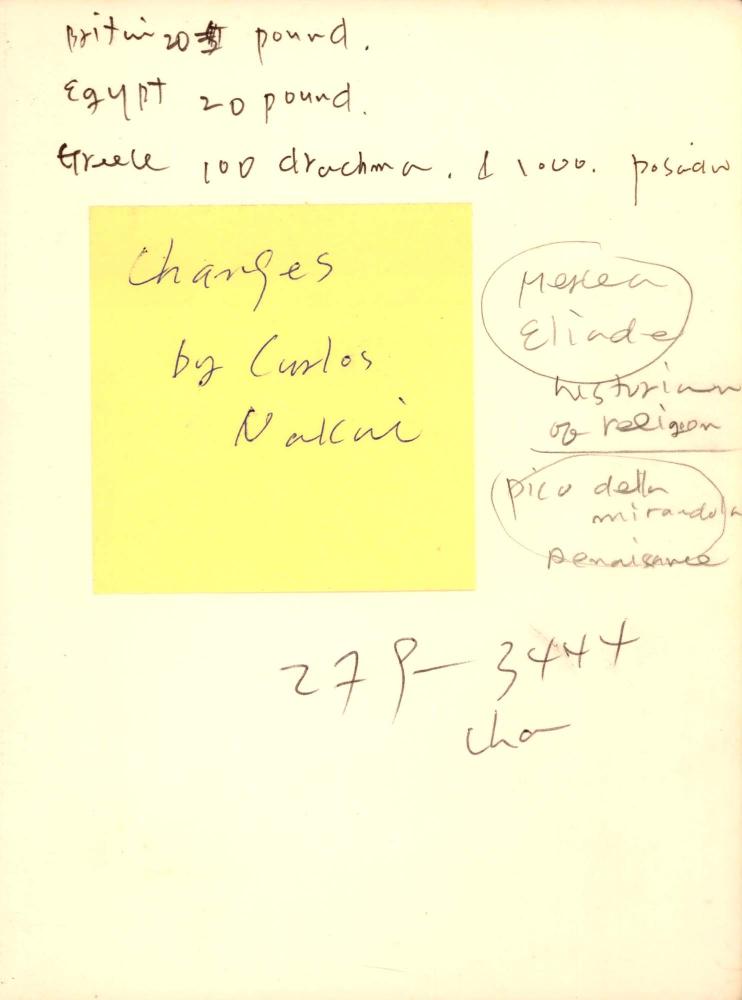 Britain 20 pound.
Egypt 20 pound.
Greece 100 drachma. & 1000.
Changes
by Carlos
Nakai
Mercea
Eliade
historian
of religion
pico della
mirandola
Renaisance
279-3444
Cha